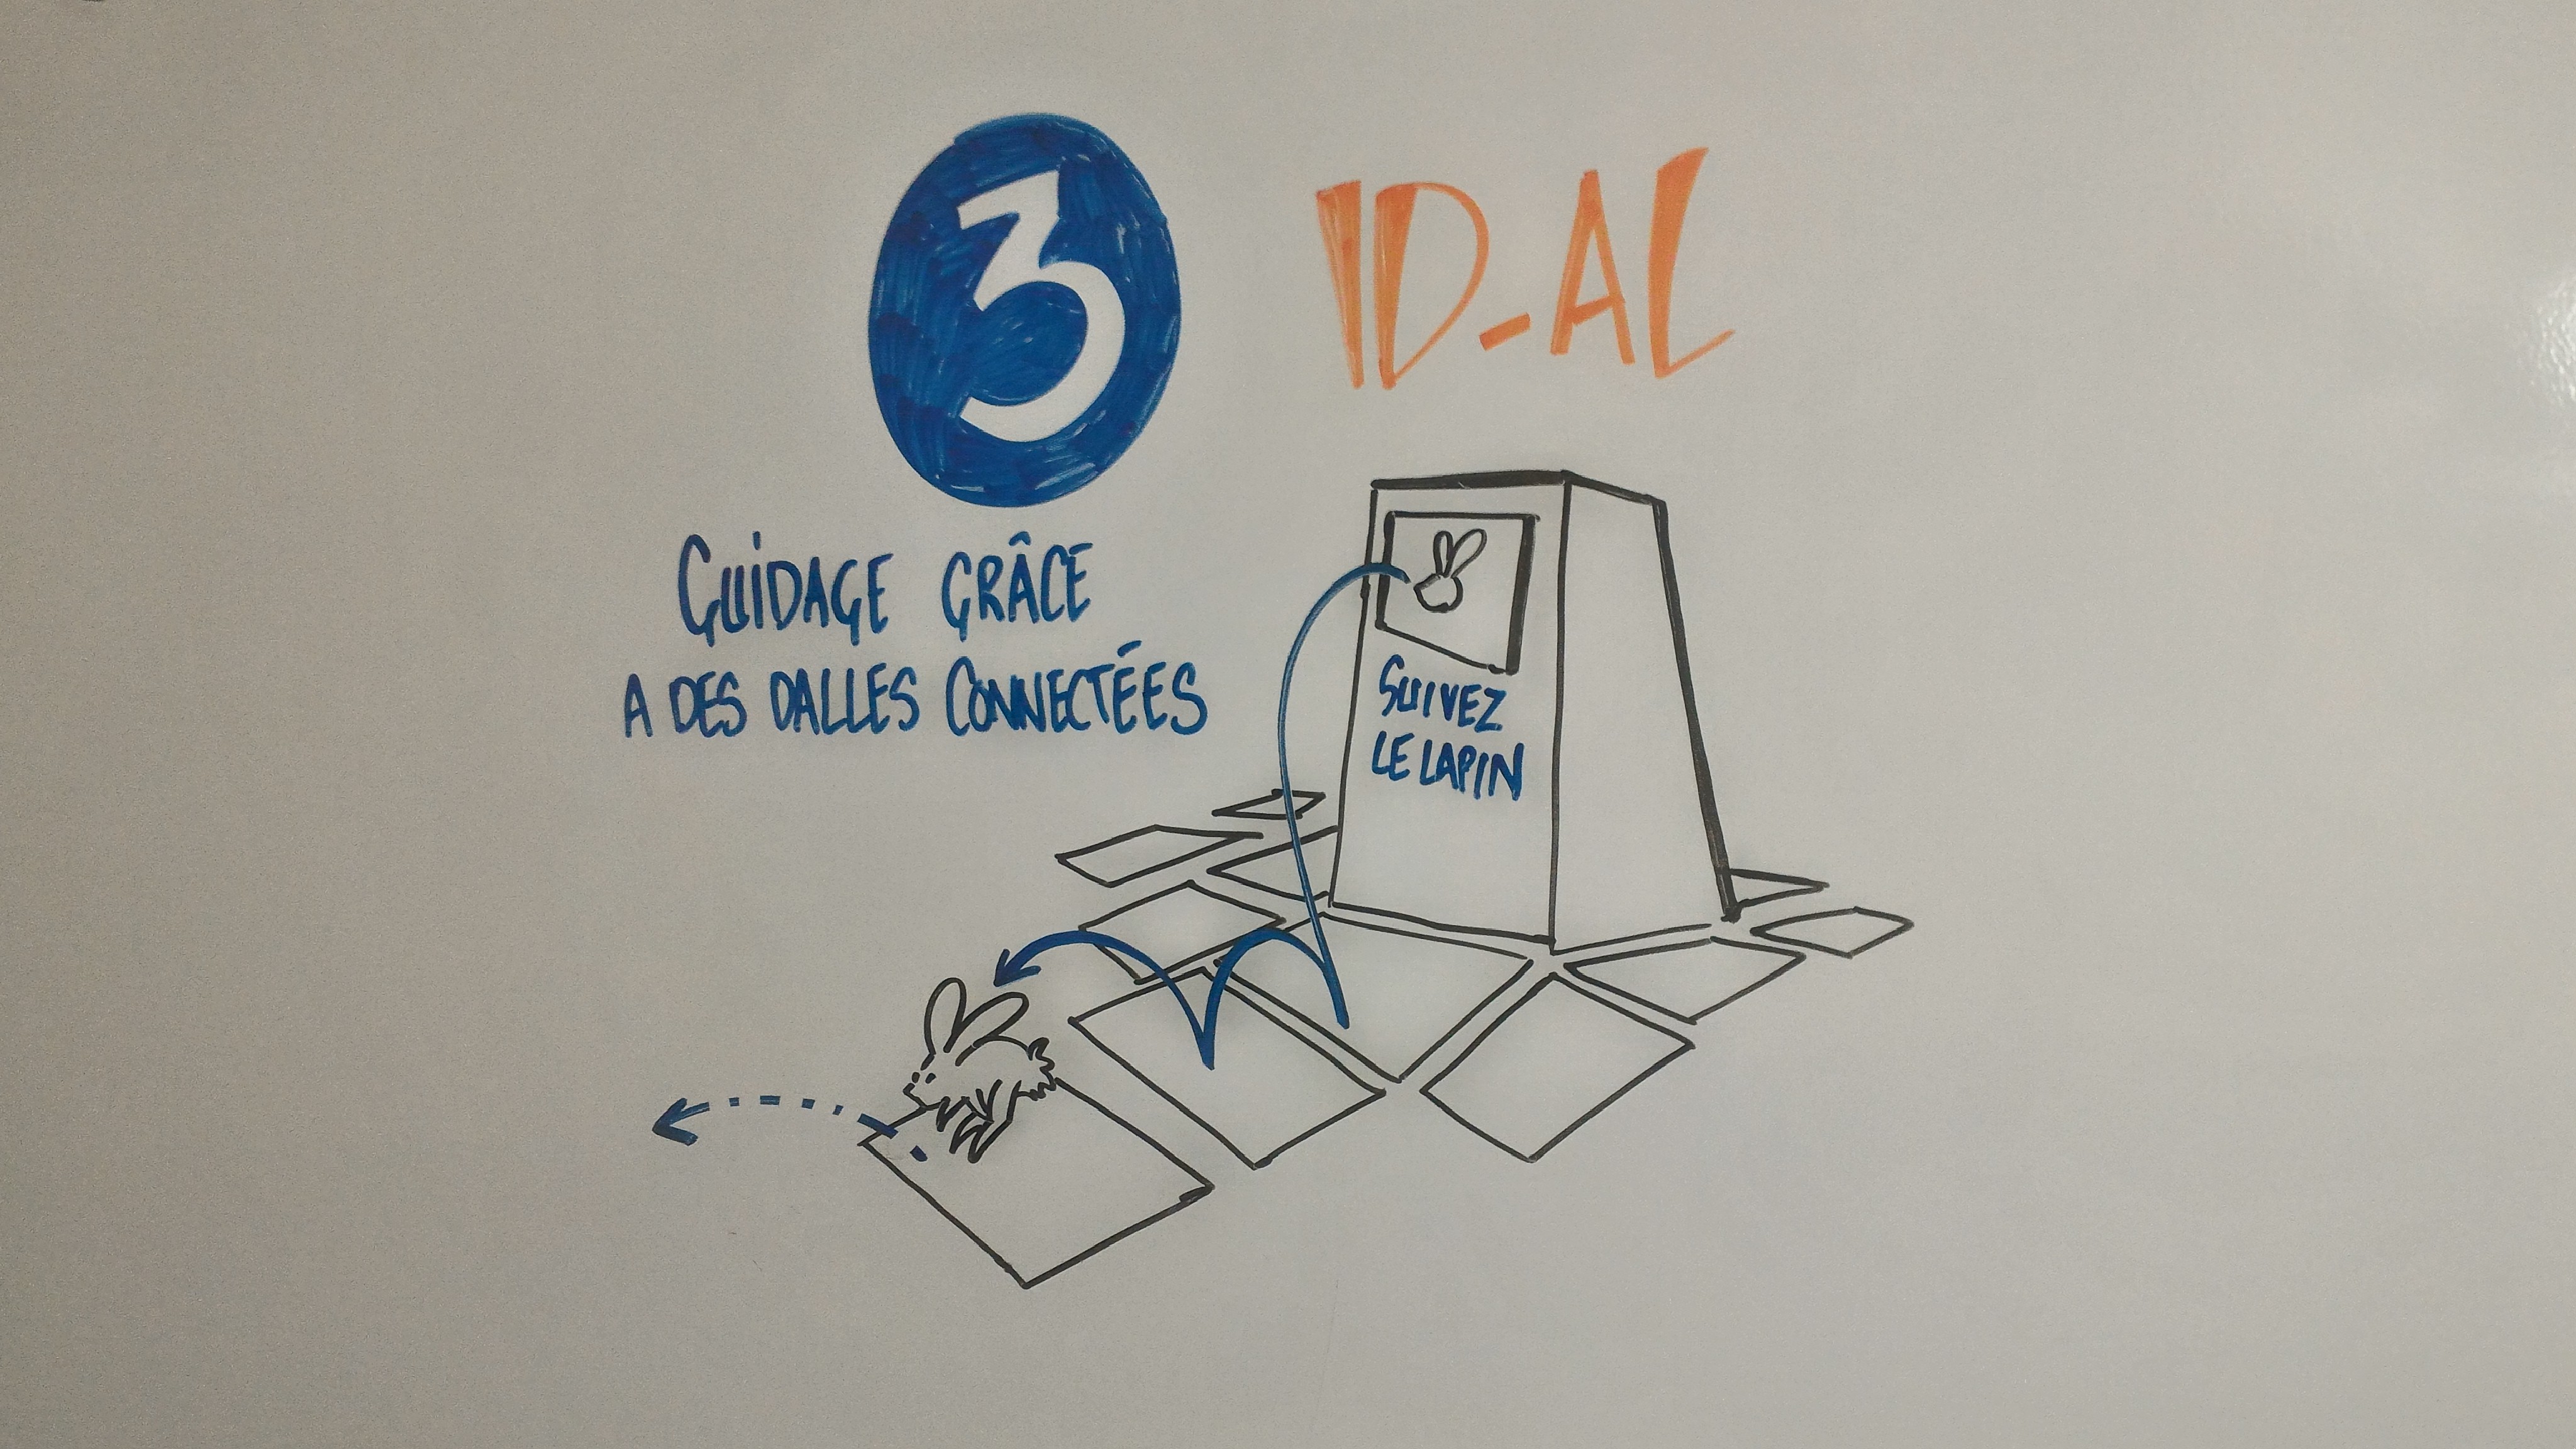 3
ID-AL
GUIDAGE GRÂCE
A DES DALLES CONNECTÉES
SUIVEZ
LE LAPIN